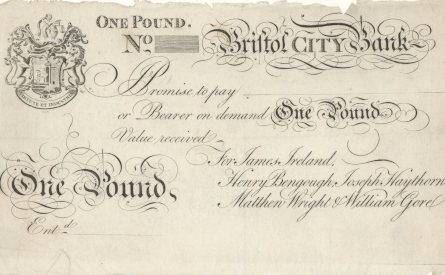 ONE POUND.
No
Bristol CITY Bank
I Promise to pay
or Bearer on demand One Pound
Value received
For James Ireland,
Henry Bengough, Joseph Haythorn
Matthew Wright & William Gore
One Pound
Ent.d